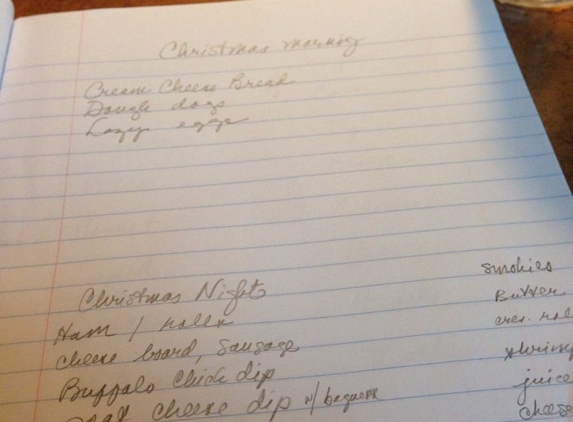 Christmas morning
Cream Cheese Bread
Dough dogs
Lazy eggs
Christmas Night
Ham / rolls
cheese board, Sausage
Buffalo Chick dip
cheese dip w/
smokies
Butter
cres. rol
shrimp
juice
cheese